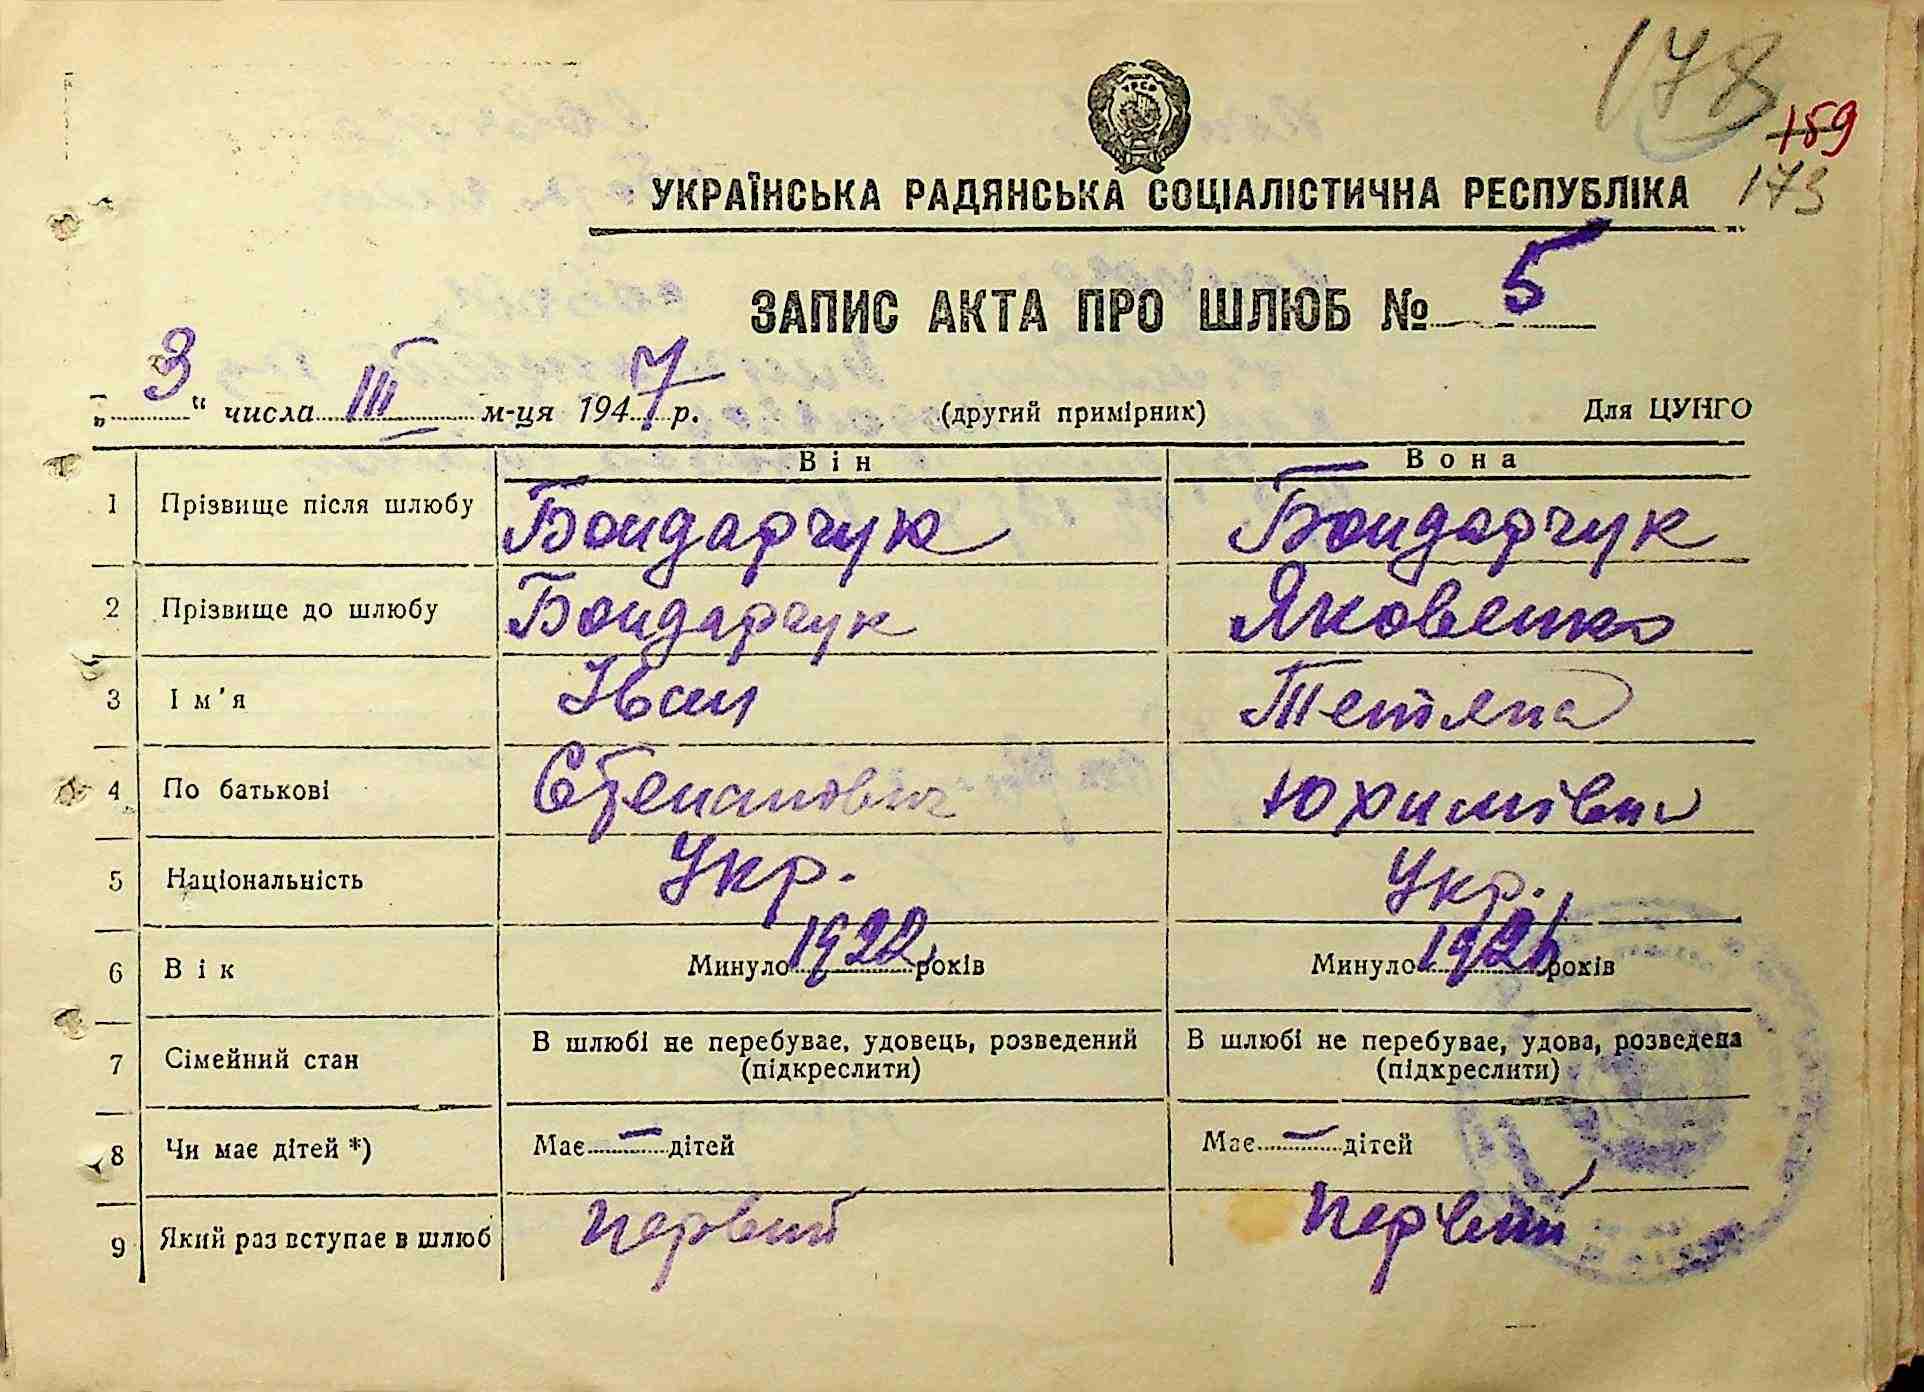 178
159
173
УКРАЇНСЬКА РАДЯНСЬКА СОЦІАЛІСТИЧНА РЕСПУБЛІКА
ЗАПИС АКТА ПРО ШЛЮБ № 5
„3“ числа III м-ця 1947 р. (другий примірник) Для ЦУНГО
Він Вона
1 Прізвище після шлюбу Бондарчук Бондарчук
2 Прізвище до шлюбу Бондарчук Яковенко
3 Ім'я Іван Тетяна
4 По батькові Степанович Юхимівна
5 Національність Укр. Укр.
6 Вік Минуло 1922 років Минуло років
7 Сімейний стан В шлюбі не перебуває, удовець, розведений В шлюбі не перебуває, удова, розведена
(підкреслити) (підкреслити)
8 Чи має дітей *) Має — дітей Має — дітей
9 Який раз вступає в шлюб первий первий